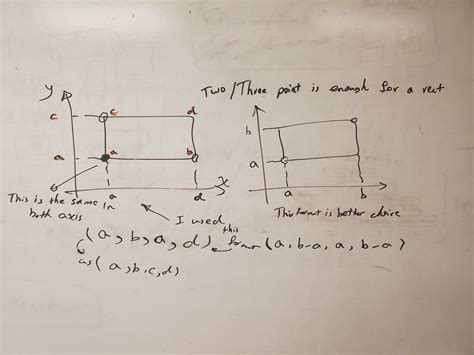 Two/Three point is enough for a rect
y
c c d
h
a a b
a
a d x
a b
This is the same in
both axis
I used
This format is better choice
this
(a, b, a, d) format (a, b-a, a, b-a)
as (a, b, c, d)